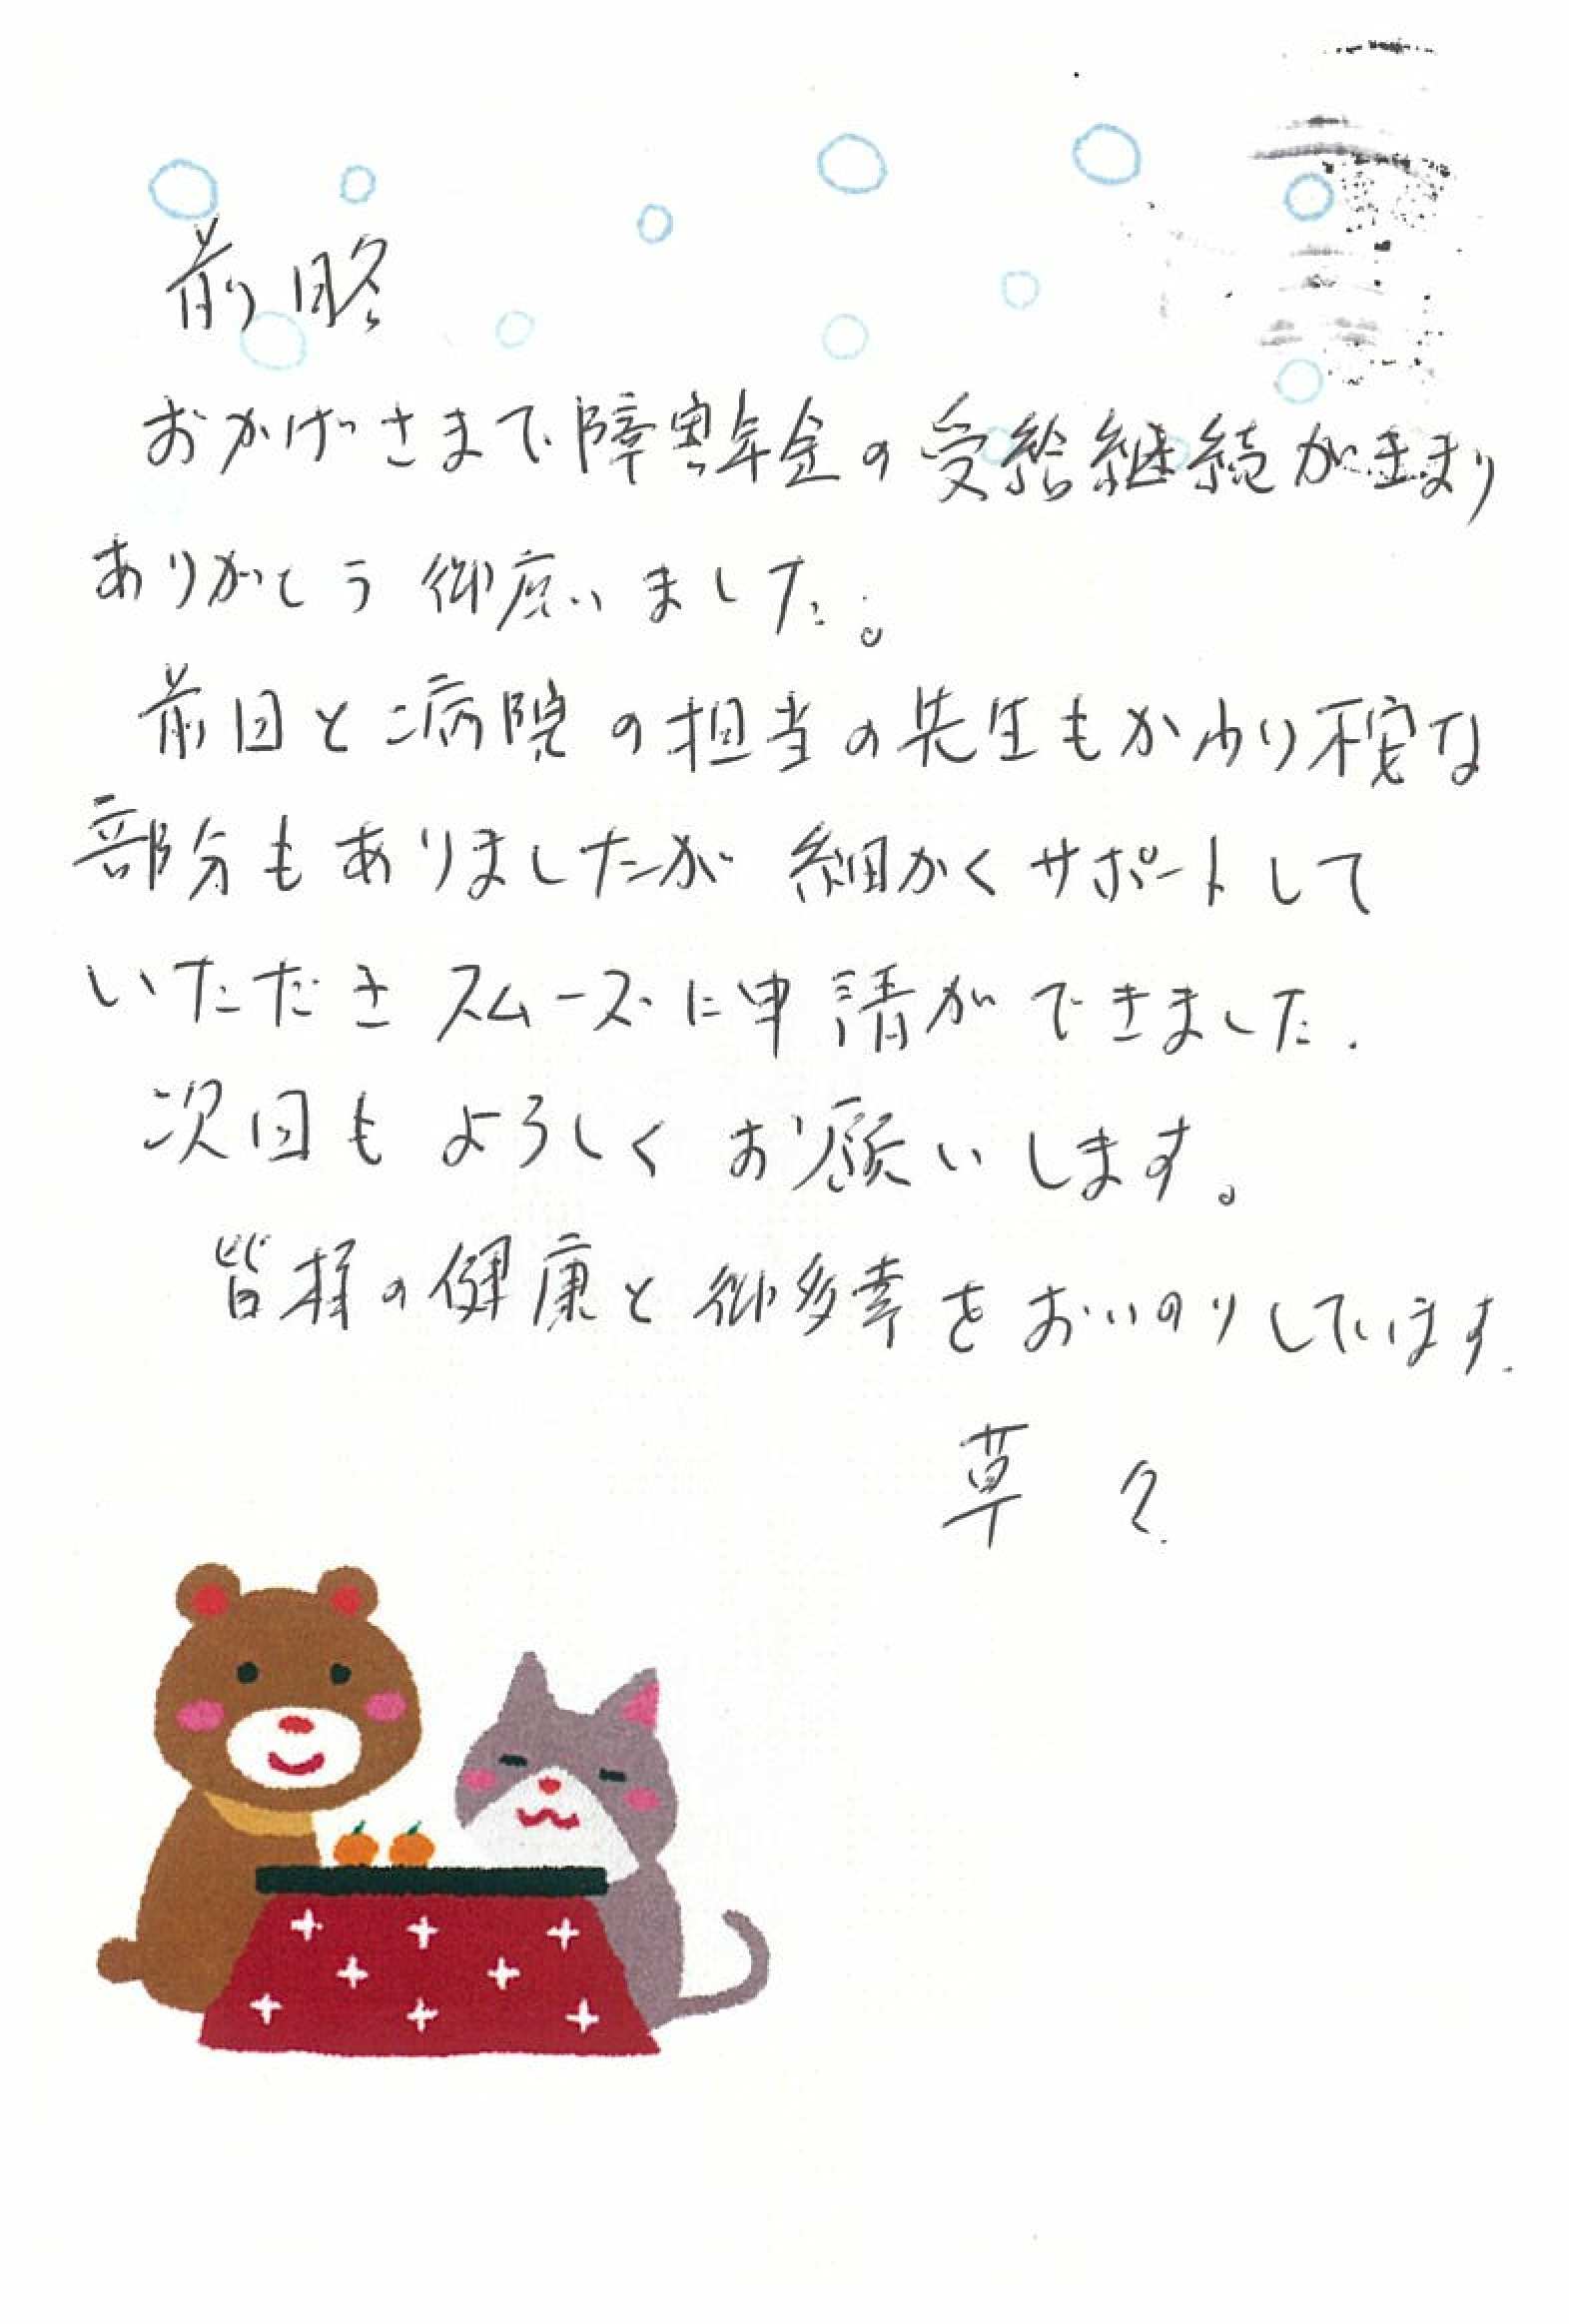 前略
おかげさまで障害年金の受給継続がきまり
ありがとう御座いました。
前回と病院の担当の先生もかわり不安な
部分もありましたが細かくサポートして
いただきスムーズに申請ができました.
次回もよろしくお願いします。
皆様の健康と御多幸をおいのりしています.
草々